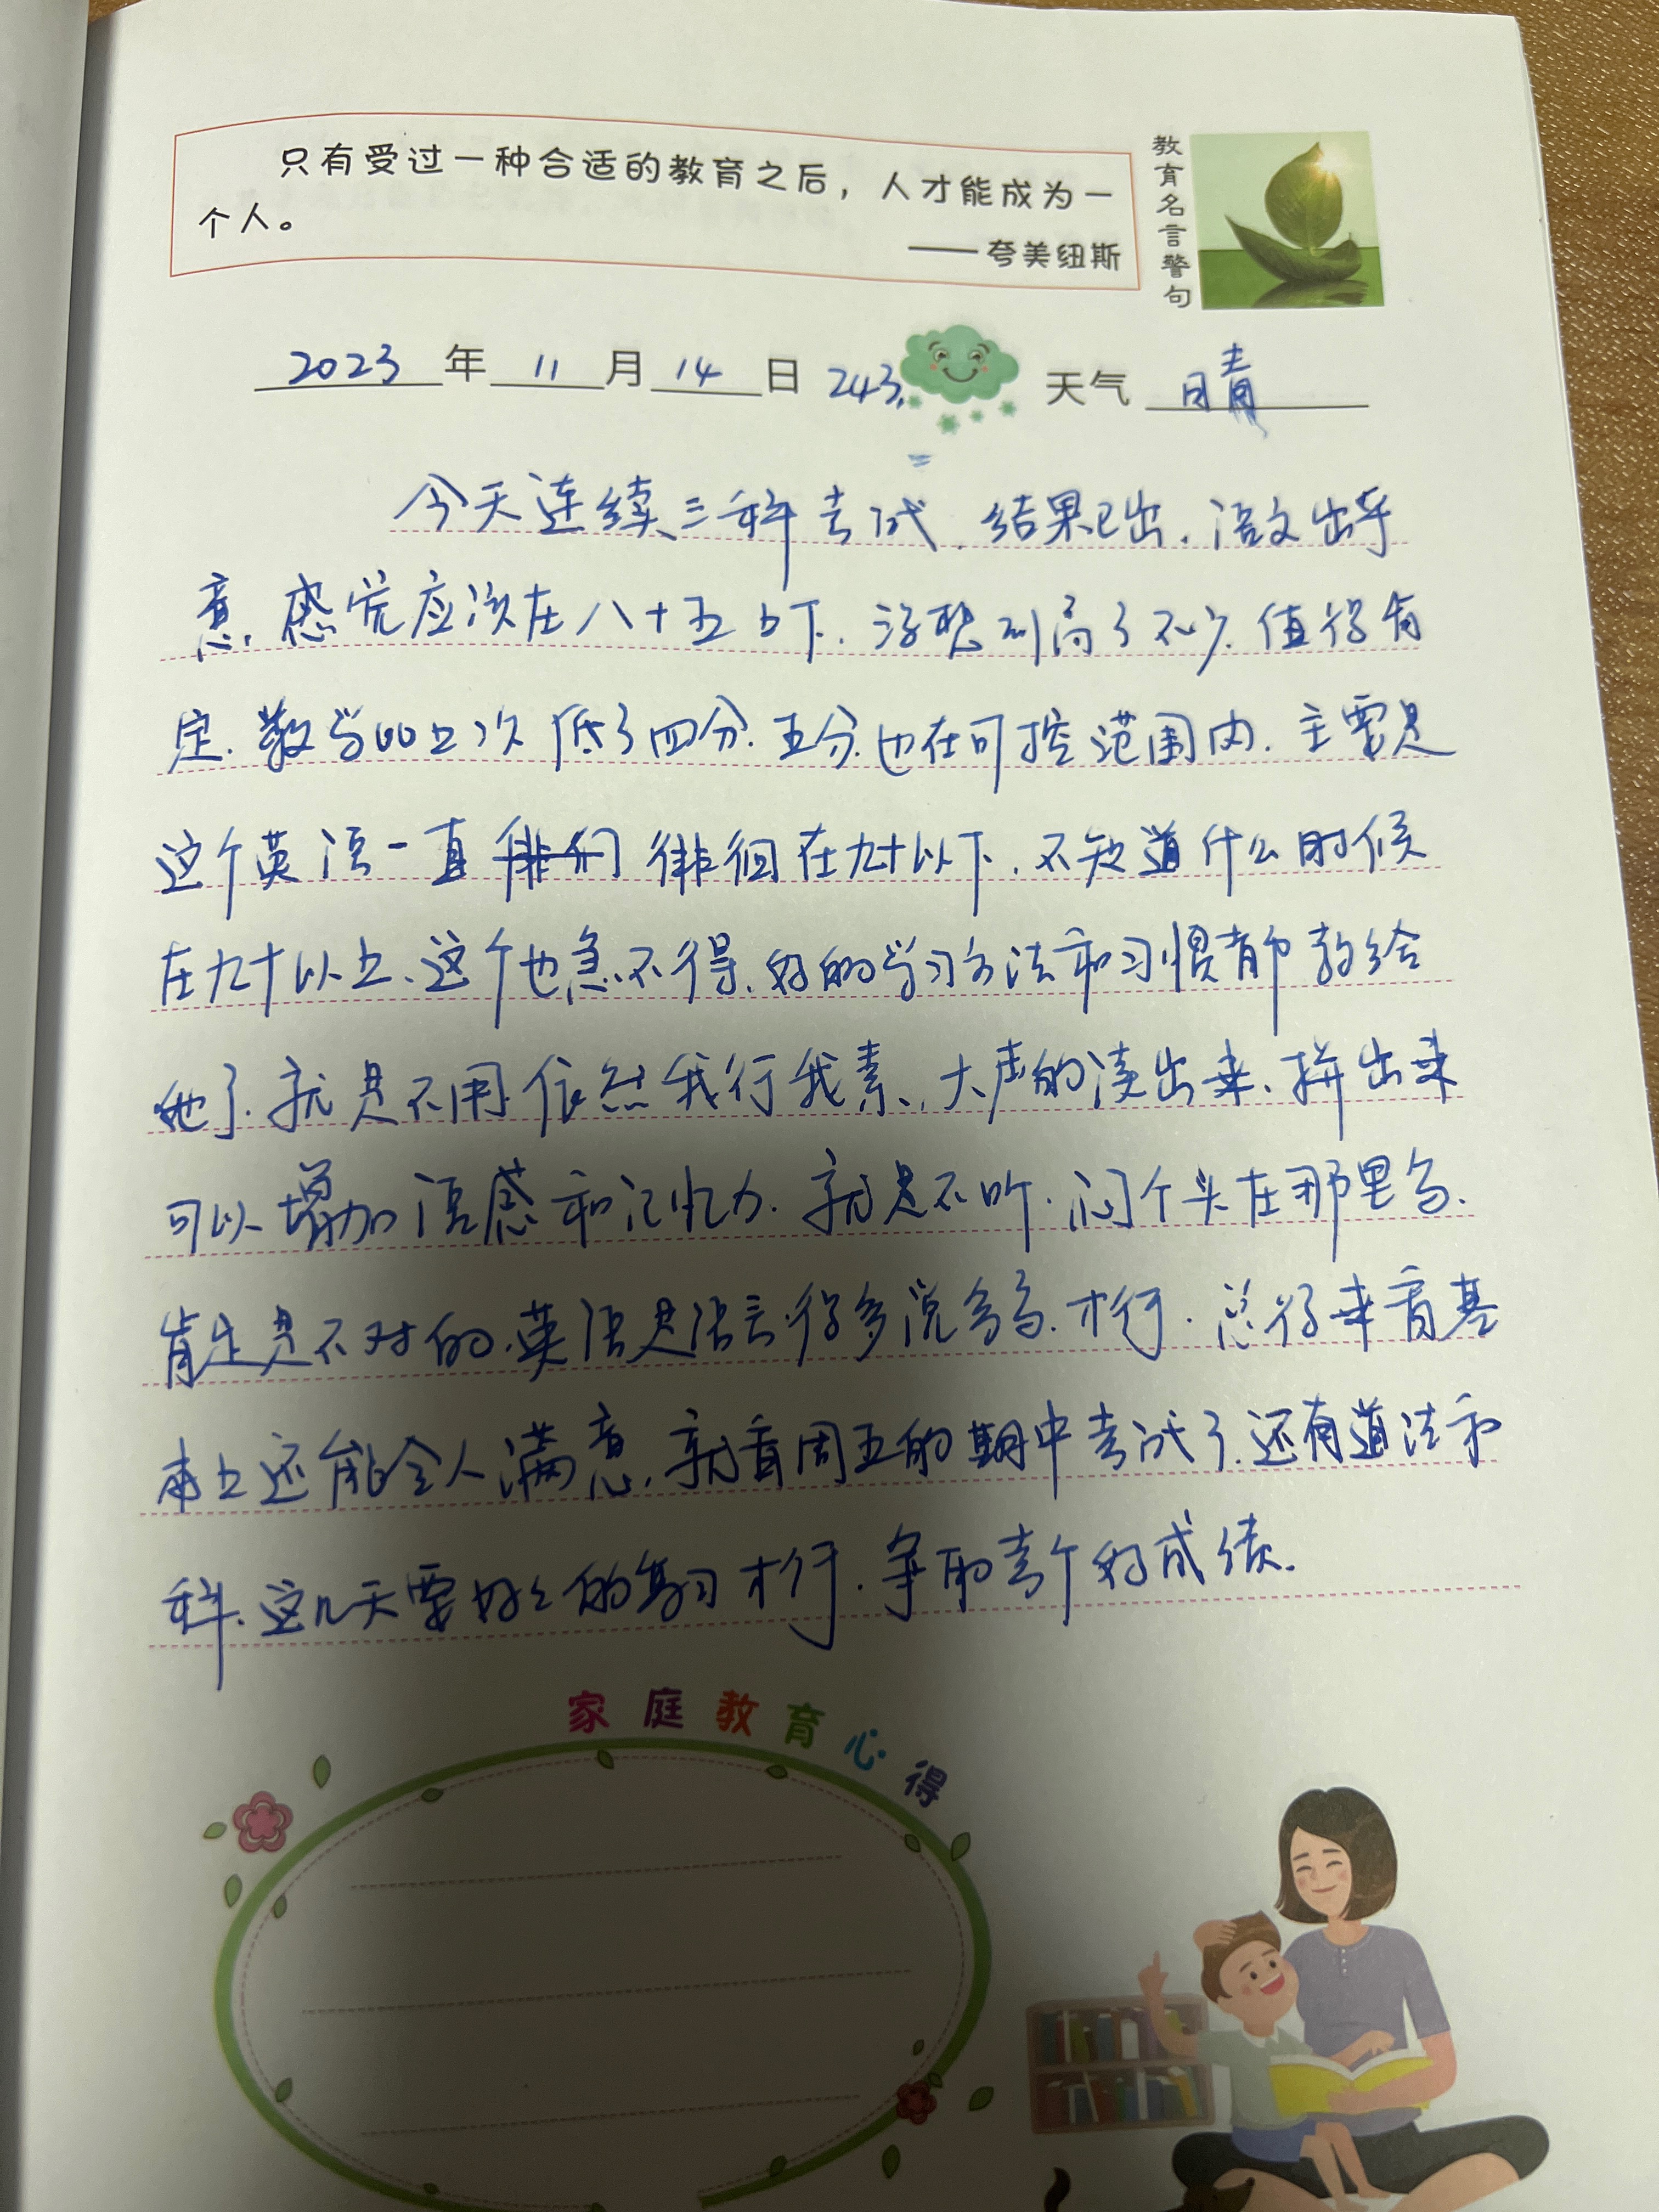 只有受过一种合适的教育之后，人才能成为一
个人。
——夸美纽斯
教育名言警句
2023年11月14日 243. 天气 晴
今天连续三科考试.结果已出.语文出乎
意.感觉应该在八十五上下.没想到高了不少.值得肯
定.数学比上次低了四分.五分也在可控范围内.主要是
这个英语一直徘徊在九十以下.不知道什么时候
在九十以上.这个也急不得.好的学习方法和习惯都教给
她了.就是不用.依然我行我素.大声的读出来.拼出来
可以增加语感和记忆力.就是不听.闷个头在那里写.
肯定是不对的.英语是语言.得多说多写.才行.总得来看基
本上还能令人满意.就看周五的期中考试了.还有道法和
科.这几天要好好的复习才行.争取考个好成绩.
家庭教育心得